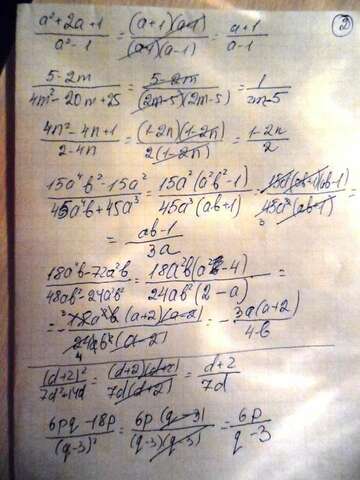 ②
(a²+2a+1)/(a²-1) = (a+1)(a+1)/(a+1)(a-1) = (a+1)/(a-1)
(5-2m)/(4m²-20m+25) = (5-2m)/(2m-5)(2m-5) = 1/(2m-5)
(4n²-4n+1)/(2-4n) = (1-2n)(1-2n)/2(1-2n) = (1-2n)/2
(15a⁴b²-15a²)/(45a⁴b+45a³) = 15a²(a²b²-1)/45a³(ab+1) = 15a²(ab+1)(ab-1)/45a³(ab+1) =
= (ab-1)/3a
(18a⁴b-72a²b)/(48ab²-24a²b²) = 18a²b(a²-4)/24ab²(2-a) =
= 18a²b(a+2)(a-2)/24ab²(a-2) = -3a(a+2)/4b
(d+2)²/(7d²+14d) = (d+2)(d+2)/7d(d+2) = (d+2)/7d
(6pq-18p)/(q-3)² = 6p(q-3)/(q-3)(q-3) = 6p/(q-3)